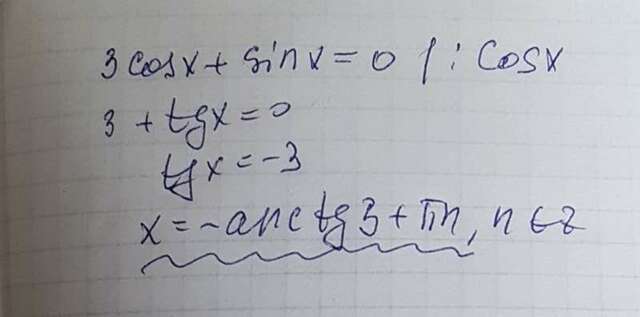 3 cosx + sinx = 0 | : cosx
3 + tgx = 0
tgx = -3
x = -arctg3 + πn, n ∈ z